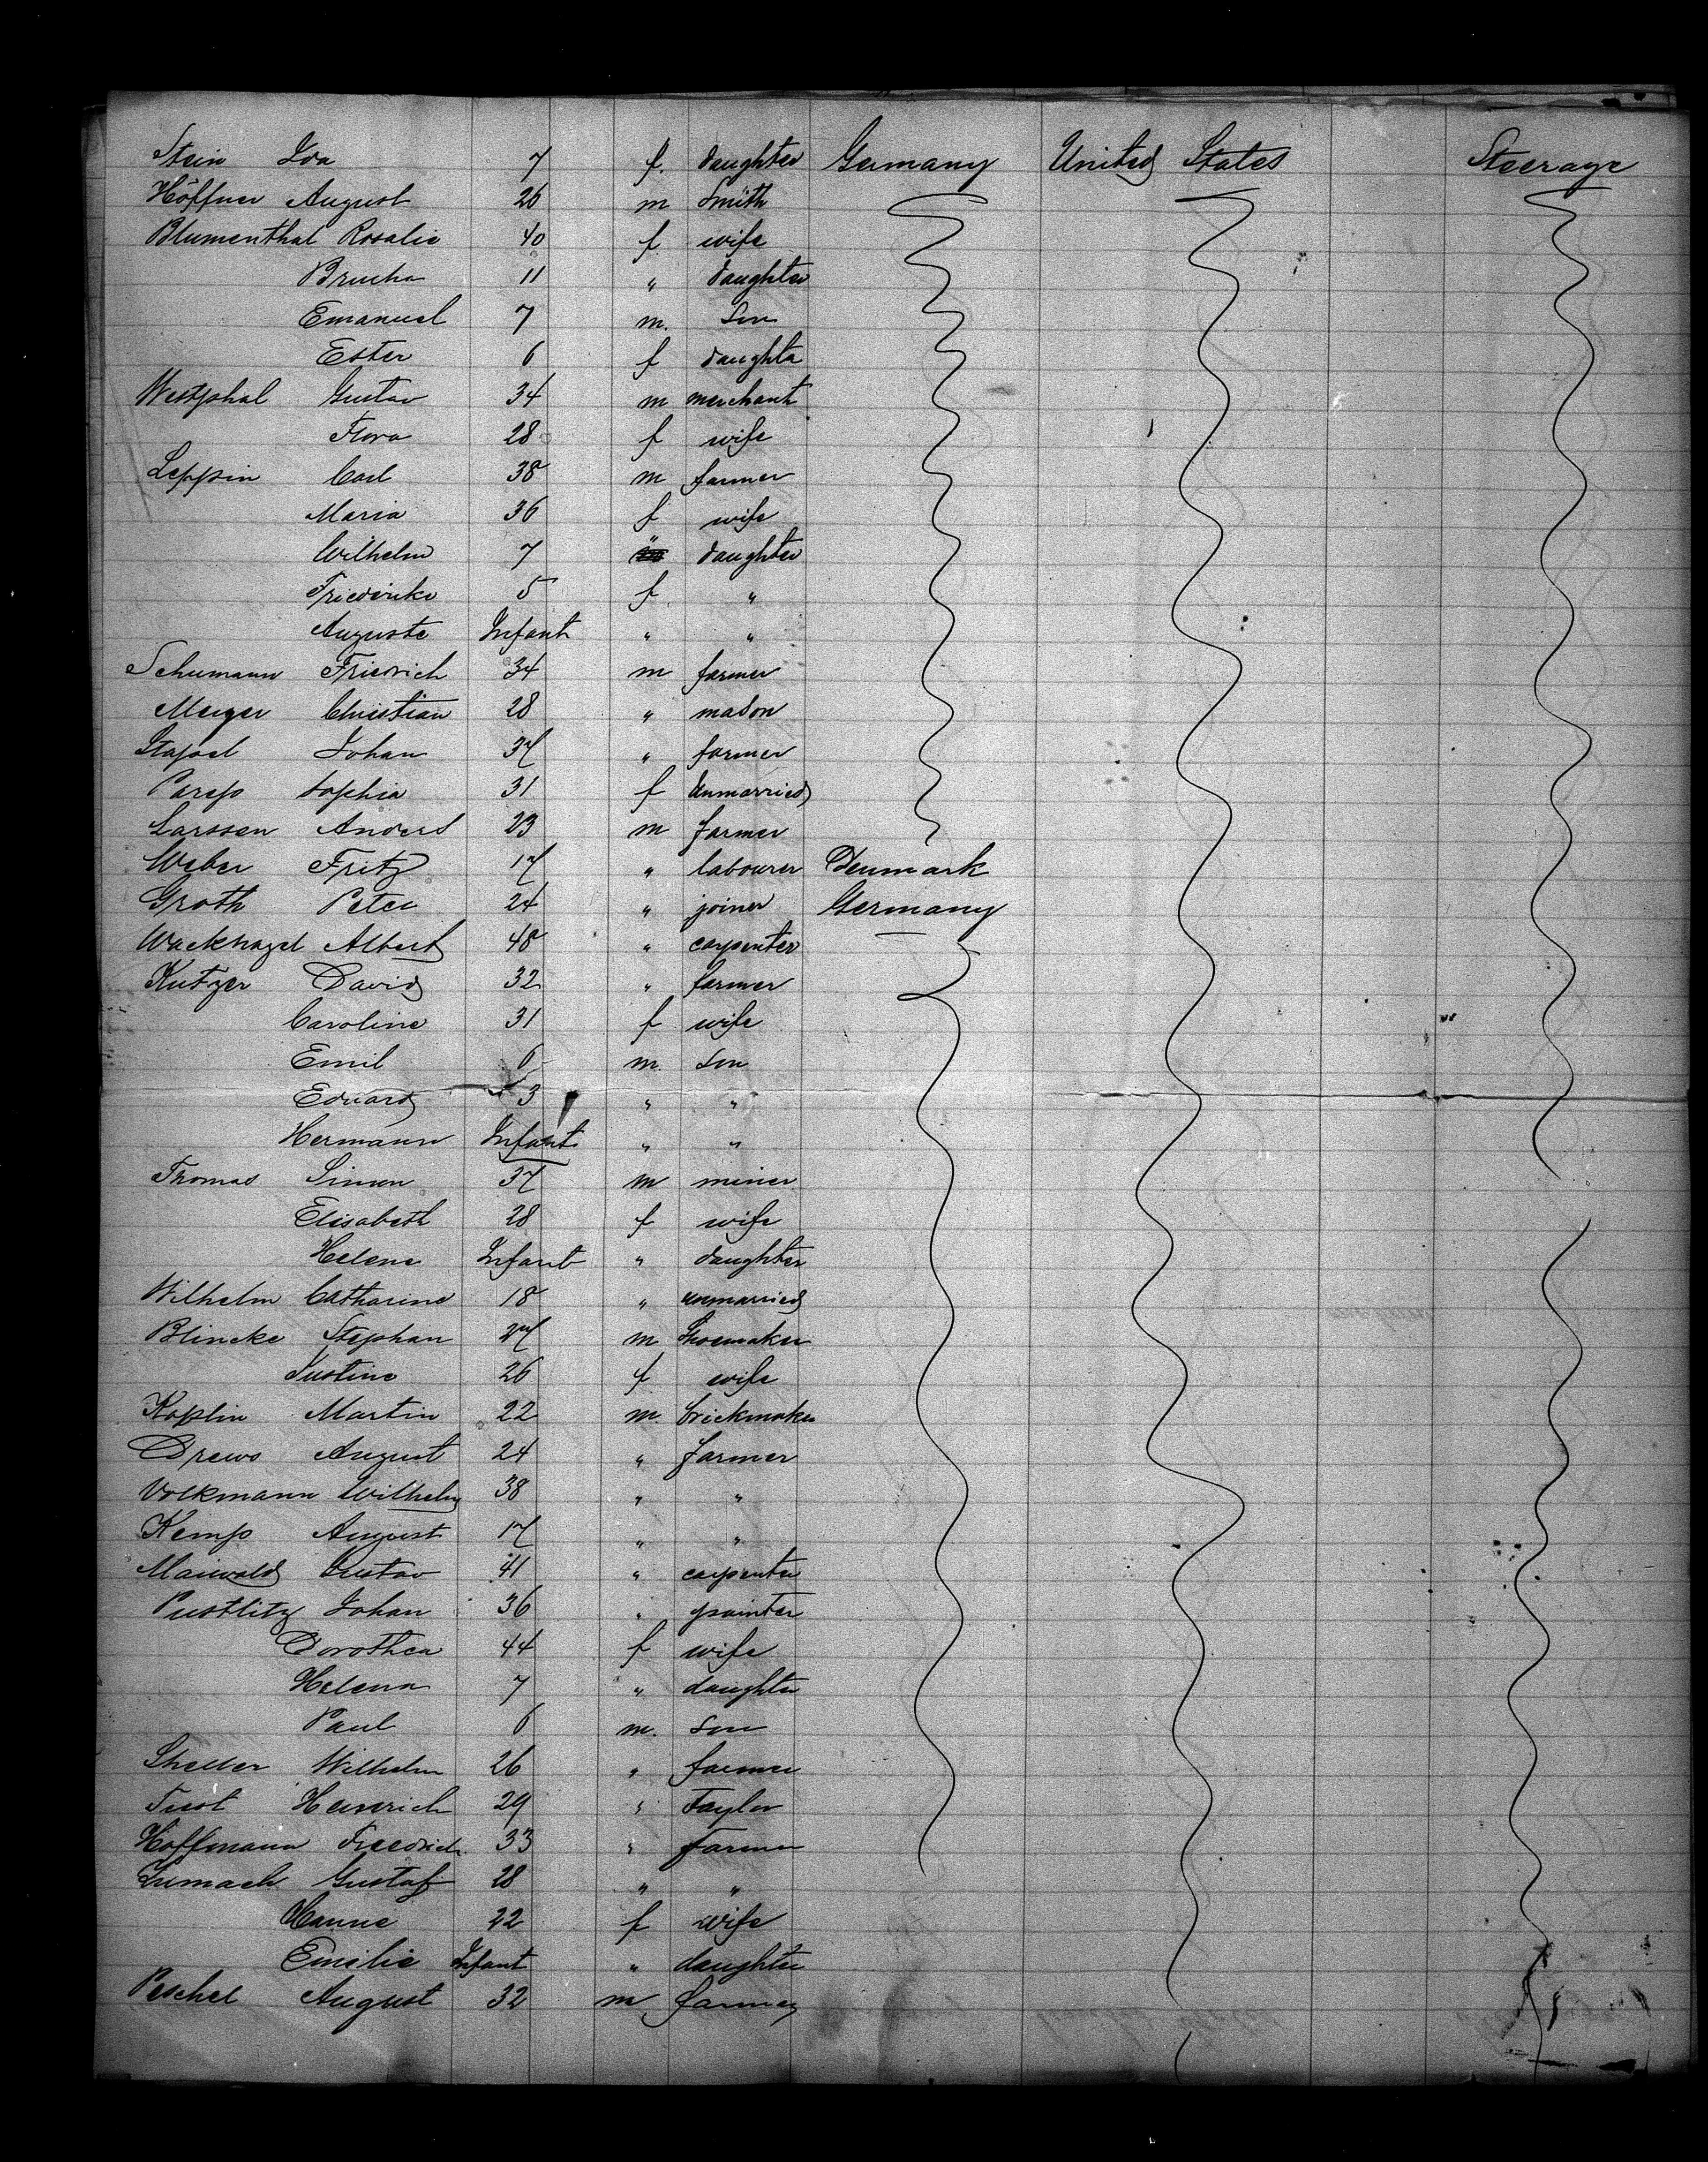 Stein Ida 7 f. daughter Germany United States Steerage
Höffner August 26 m Smith
Blumenthal Rosalie 40 f wife
Brucha 11 " daughter
Emanuel 7 m. Son
Ester 6 f daughter
Westphal Gustav 34 m merchant
Flora 28 f wife
Leppin Carl 38 m farmer
Maria 36 f wife
Wilhelm 7 " daughter
Friederike 5 f "
Auguste Infant " "
Schumann Friedrich 34 m farmer
Meyer Christian 28 " mason
Stapel Johan 37 " farmer
Parep Sophia 31 f Unmarried
Larssen Anders 23 m farmer
Weber Fritz 17 " labourer Denmark
Groth Peter 24 " joiner Germany
Wackhagel Albert 48 " carpenter
Kutzer David 32 " farmer
Caroline 31 f wife
Emil 6 m. Son
Eduard 3 " "
Hermann Infant " "
Thomas Simon 37 m miner
Elisabeth 28 f wife
Helene Infant " daughter
Wilhelm Catharine 18 " unmarried
Blincke Stephan 27 m Shoemaker
Justine 26 f wife
Koplin Martin 22 m. brickmaker
Drews August 24 " farmer
Volkmann Wilhelm 38 " "
Kemp August 17 " "
Maiwald Gustav 41 " carpenter
Pustlitz Johan 36 " painter
Dorothea 44 f wife
Helena 7 " daughter
Paul 6 m. Son
Wilhelm 26 " farmer
Heinrich 29 " Taylor
Hoffmann Friedrich 33 " Farmer
Gustaf 28 " "
Hanne 22 f wife
Emilie Infant " daughter
Peschel August 32 m farmer